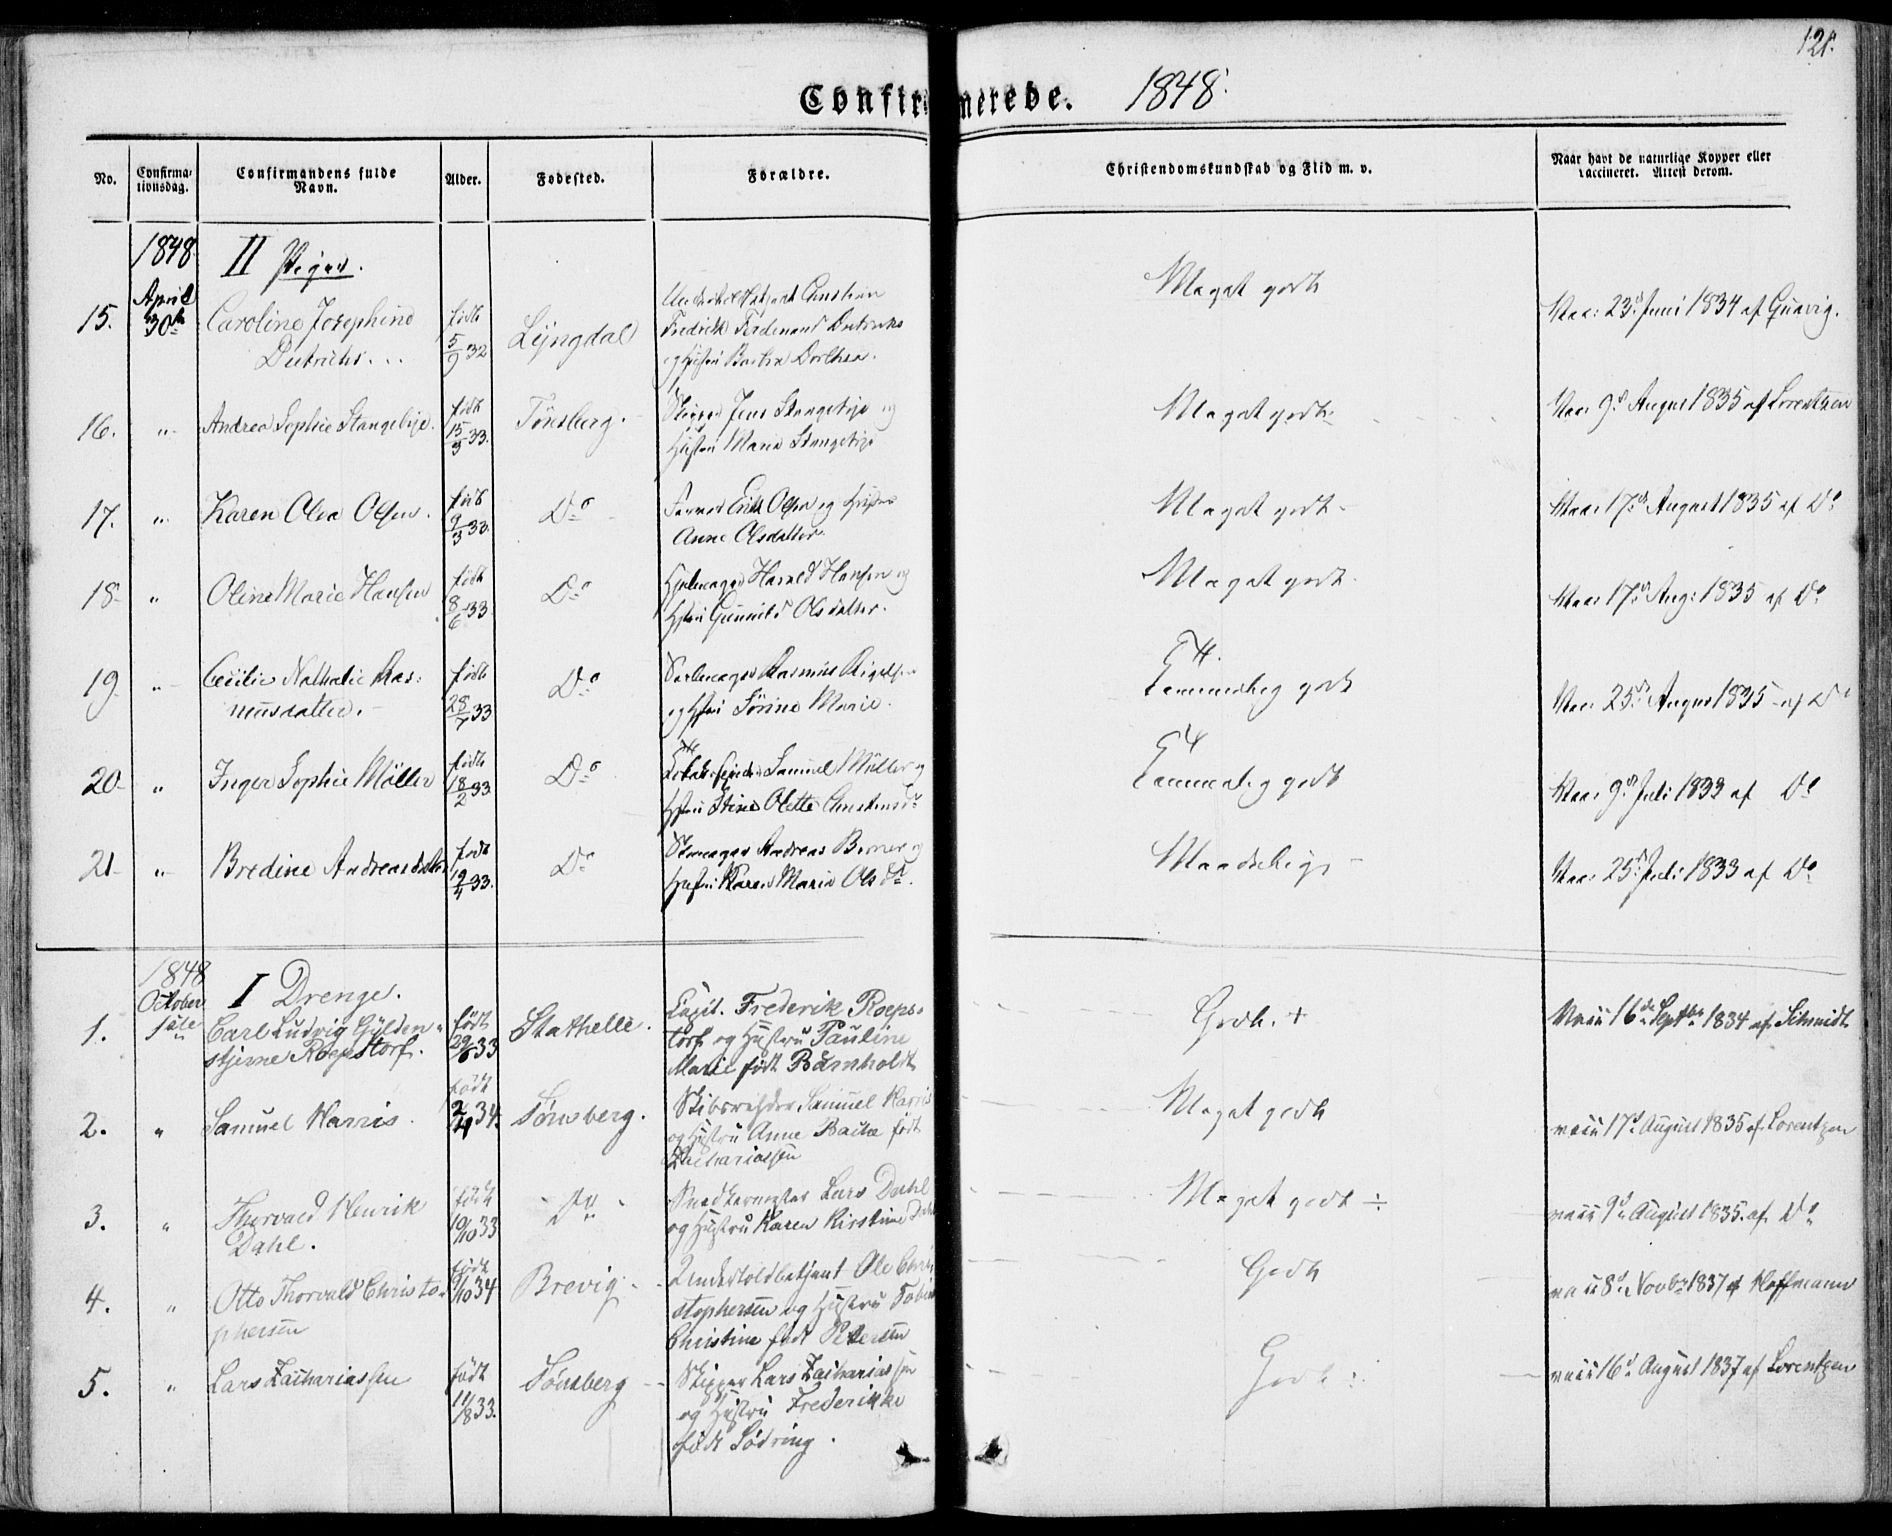 121.
Confirmerede. 1848.
No.
Confirma-
tionsdag.
Confirmandens fulde
Navn.
Alder.
Fødested.
Forældre.
Christendomskundskab og Flid m. v.
Naar havt de naturlige Kopper eller
vaccineret. Attest derom.
1848 II Piger.
15. April 30te Caroline Josephine født 5/9 32 Lÿngdal
Christian
Fredrik Ferdinand
og Hustru Dorthea.
Meget godt
Vac: 23d Juni 1834 af
16. " Andrea Sophie Stangebÿe. født 15/3 33. Tønsberg.
Skipper Jens Stangebÿe og
Hustru Maria Stangebÿe
Meget godt
Vac: 9d August 1835 af Lorentzen
17. " Karen Olea Olsen. født 9/3 33. Do
Erik Olsen og Hustru
Anne Olsdatter.
Meget godt
Vac: 17d August 1835 af Do
18 " Oline Marie Hansen født 8/6 33 Do
Harald Hansen og
Hstru Gunnild Olsdatter.
Meget godt
Vac: 17d Aug: 1835 af Do
19 " Cecilie Nathalie Ras:
musdatter. født 28/7 33 Do
Rasmus
og Hstru Sørine Marie.
T4.
Temmelig godt
Vac: 25d August 1835 af Do
20 " Inger Sophie Møller født 18/2 33 Do
Samuel Müller og
Hstru Stine Olette
T4
Temmelig godt
Vac: 9d Juli 1833 af Do
21 " Bredine Andreasdatter født 19/4 33. Do
Andreas og
Hustru Karen Maria Olsdr.
Maadelig
Vac: 25d Juli 1833 af Do
1848 I Drenge.
October 1ste
1. Carl Ludvig Gÿlden-
stjerne Roepstorf. født 29/6 33 Stathelle.
Capit. Frederik Roeps-
torf og Hustru Pauline
Marie født Barnholdt
Godt. +
Vacc 16de Septbr 1834 af Schmidt
2. " Samuel Harris. født 2/4 34. Tønsberg.
Samuel Harris
og Hustru Anne født
Zachariassen
Meget godt
vacc 17d August 1835 af Lorentzen
3. " Thorvald Henrik
Dahl. født 19/10 33 Do
Snedkermester Lars Dahl
og Hustru Karen Kirstine Dahl
Meget godt ÷
vacc 9d August 1835. af Do
4. " Otto Thorvald Christo-
phersen født 9/10 34 Brevig
Undertoldbetjent Ole Chri-
stophersen og Hustru
Christine født Petersen
Godt
vacc 8d Novbr 1837 af Hoffmann
5. " Lars Zachariassen født 11/8 33. Tønsberg
Skipper Lars Zachariassen
og Hustru Frederikke
født Sødring.
Godt
vacc 16d August 1837 af Lorentzen